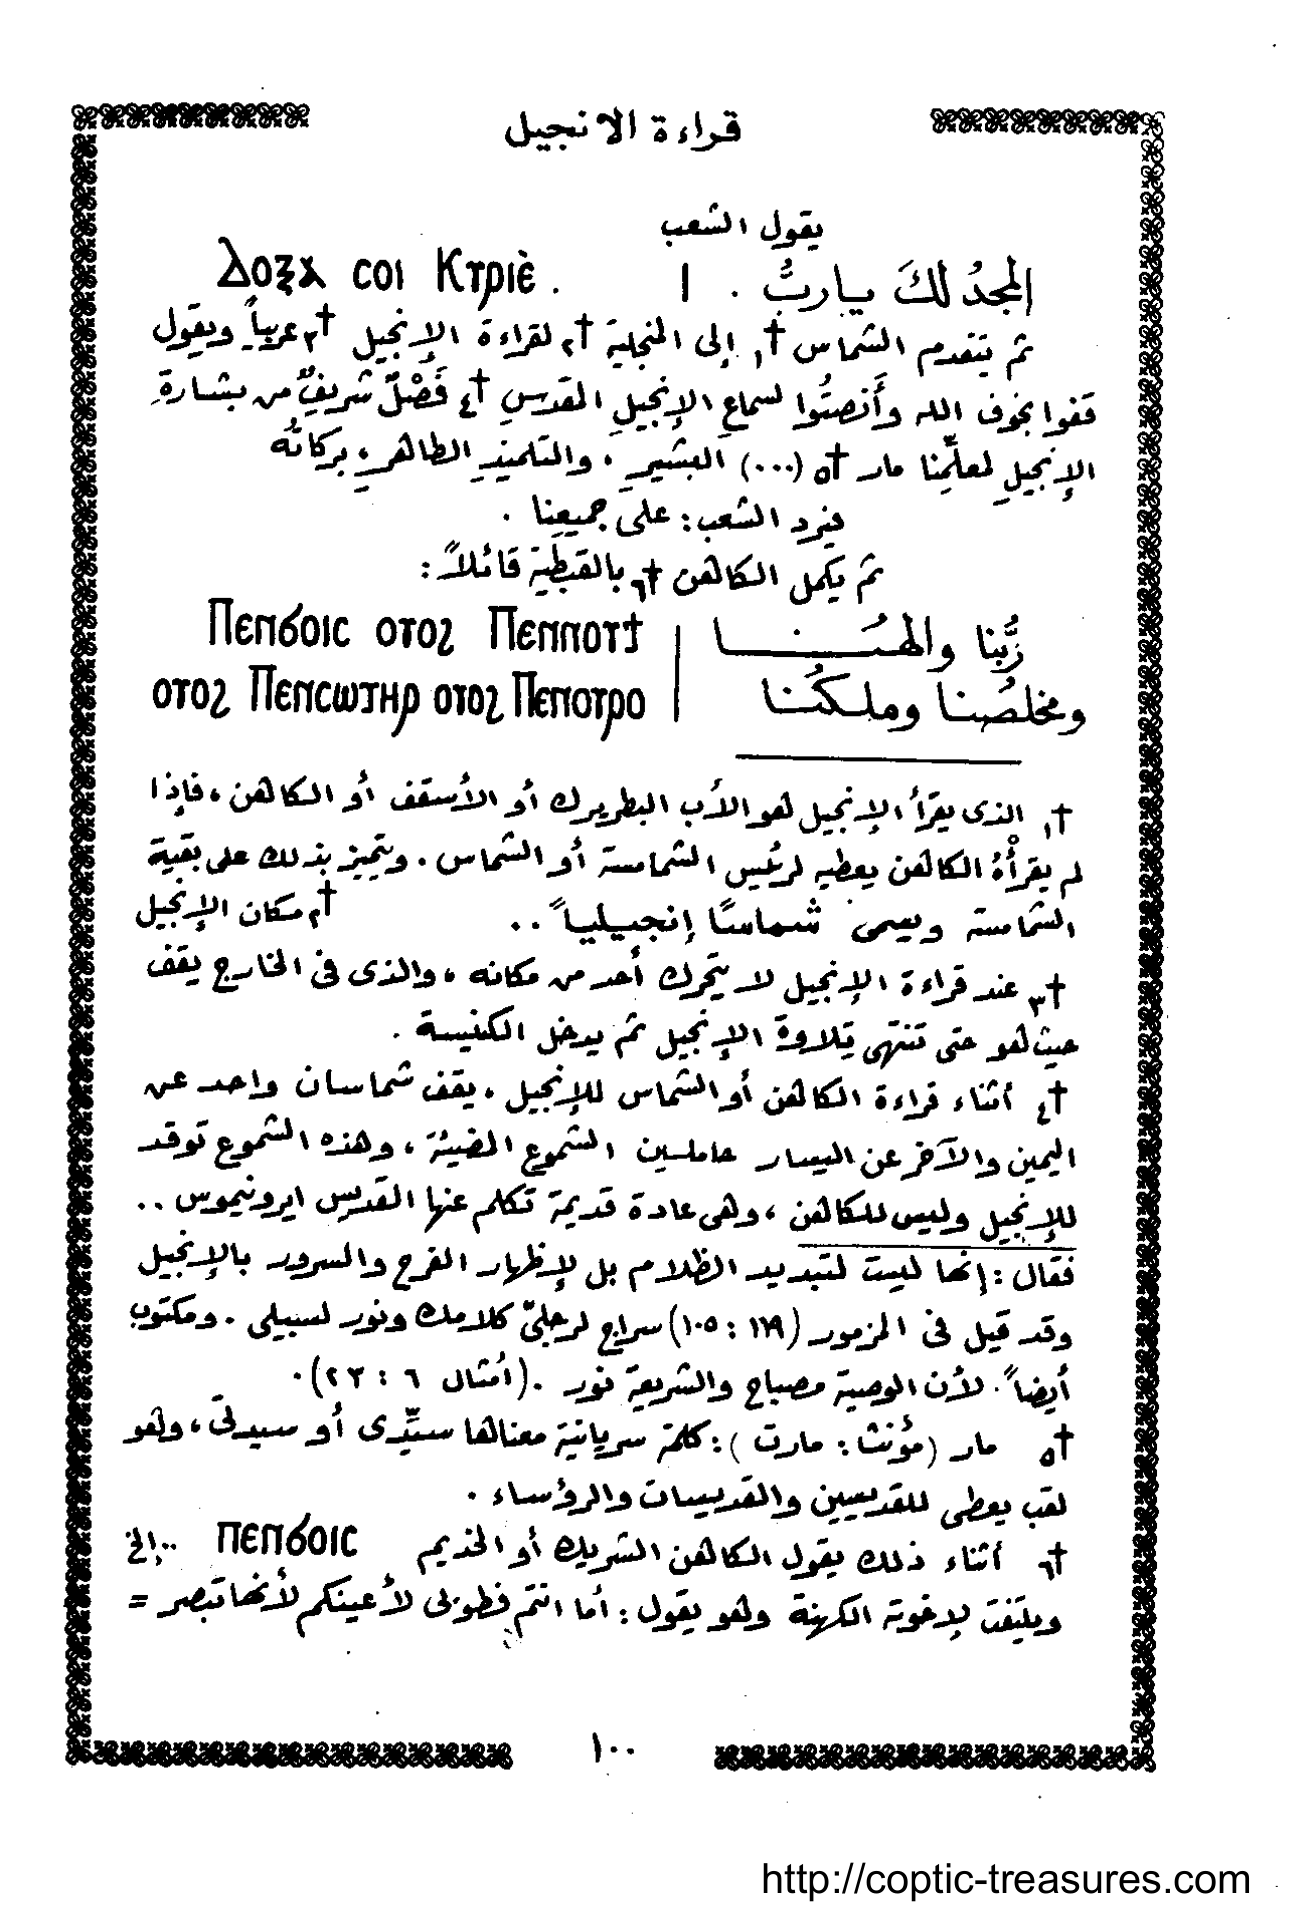 قراءة الانجيل
يقول الشعب
المجدُ لكَ يا ربُّ . | Ⲇⲟⲝⲁ ⲥⲟⲓ Ⲕⲩⲣⲓⲉ̀ .
ثم يتقدم الشماس †١ إلى المنجلية †٢ لقراءة الإنجيل †٣ عربياً ويقول
قفوا بخوف الله وأَنصتُوا لسماعِ الإنجيلِ المقدسِ †٤ فَصْلٌ شريفٌ من بشارةِ
الإنجيلِ لمعلِّمِنا مار †٥ (٠٠٠) البشيرِ ، والتلميذِ الطاهرِ ، بركاتُه
فيرد الشعب : على جميعِنا .
ثم يكمل الكاهن †٦ بالقبطية قائلاً :
رَبُّنا والهُنا | Ⲡⲉⲛϭⲟⲓⲥ ⲟⲩⲟϩ Ⲡⲉⲛⲛⲟⲩϯ
ومخلصُنا وملكُنا | ⲟⲩⲟϩ Ⲡⲉⲛⲥⲱⲧⲏⲣ ⲟⲩⲟϩ Ⲡⲉⲛⲟⲩⲣⲟ
†١ الذى يقرأ الإنجيل هو الأب البطريرك أو الأسقف أو الكاهن ، فإذا
لم يقرأْهُ الكاهن يعطيه لرئيس الشمامسة أو الشماس . ويتميز بذلك على بقية
الشمامسة ويسمى شماسًا إنجيلياً ..
†٢ مكان الإنجيل
†٣ عند قراءة الإنجيل لا يتحرك أحد من مكانه ، والذى فى الخارج يقف
حيث هو حتى تنتهى تلاوة الإنجيل ثم يدخل الكنيسة .
†٤ أثناء قراءة الكاهن أو الشماس للإنجيل ، يقف شماسان واحد عن
اليمين والآخر عن اليسار حاملين الشموع المضيئة ، وهذه الشموع توقد
للإنجيل وليس للكاهن ، وهى عادة قديمة تكلم عنها القديس ايرونيموس ..
فقال : إنها ليست لتبديد الظلام بل لإظهار الفرح والسرور بالإنجيل
وقد قيل فى المزمور (١١٩ : ١٠٥) سراج لرجلىّ كلامك ونور لسبيلى . ومكتوب
أيضاً . لأن الوصية مصباح والشريعة نور . (أمثال ٦ : ٢٣) .
†٥ مار (مؤنثا : مارت ) : كلمة سريانية معناها سيِّدى أو سيدتى ، وهو
لقب يعطى للقديسين والقديسات والرؤساء .
†٦ أثناء ذلك يقول الكاهن الشريك أو الخديم ⲡⲉⲛϭⲟⲓⲥ ..إلخ
ويلتفت لإخوته الكهنة وهو يقول : أما انتم فطوبى لأعينكم لأنها تبصر =
١٠٠
http://coptic-treasures.com